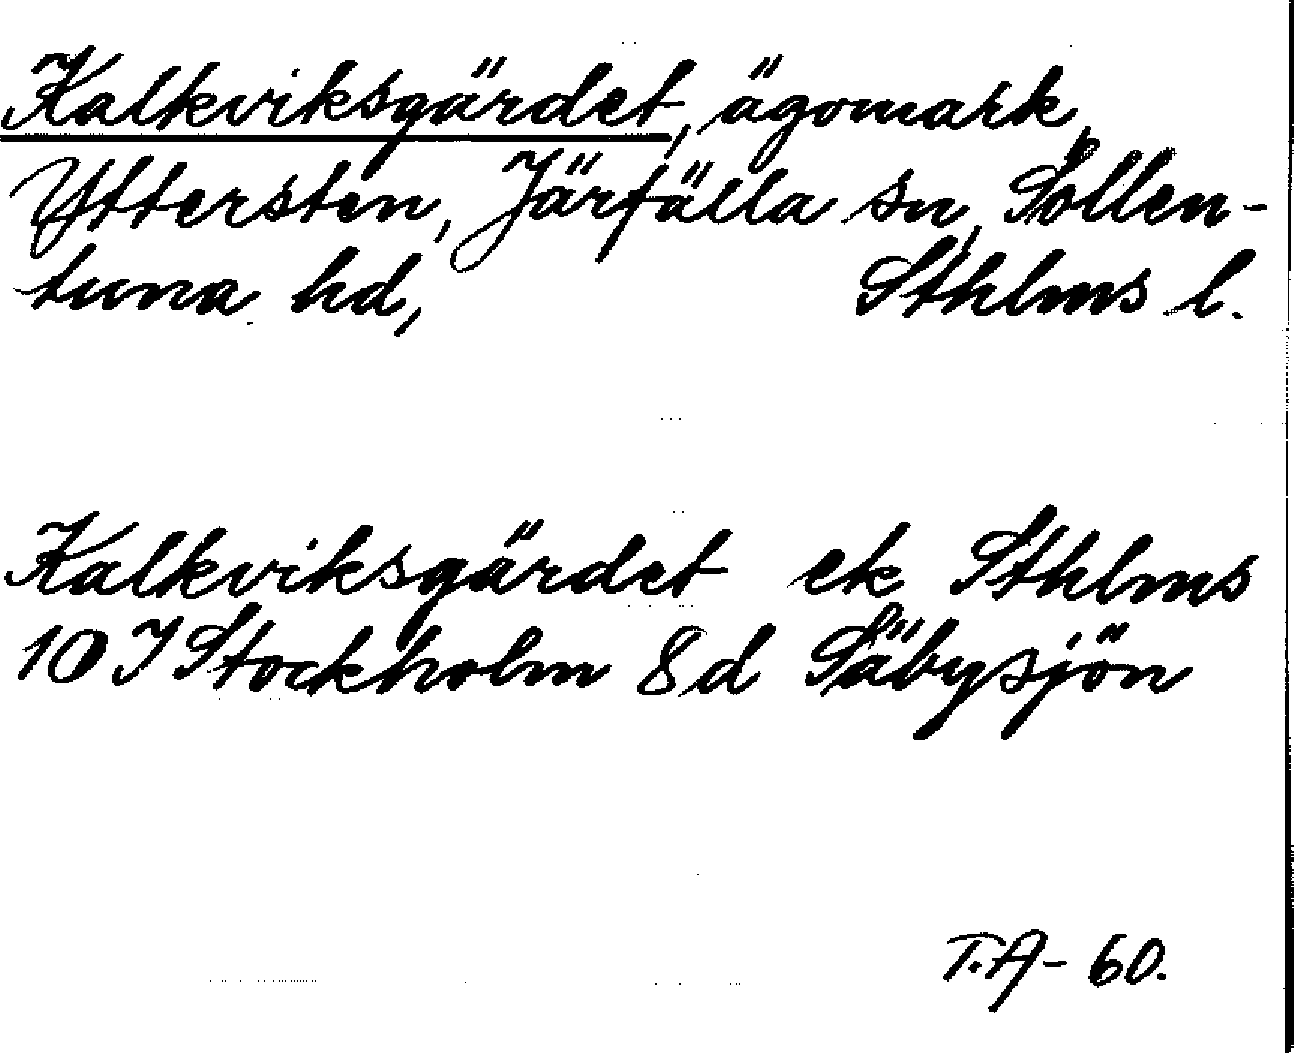 Kalkviksgärdet, ägomark,
Yttersten, Järfälla sn, Sollen-
tuna hd, Sthlms l.
Kalkviksgärdet ek Sthlms
10 I Stockholm 8d Säbysjön
T.A-60.